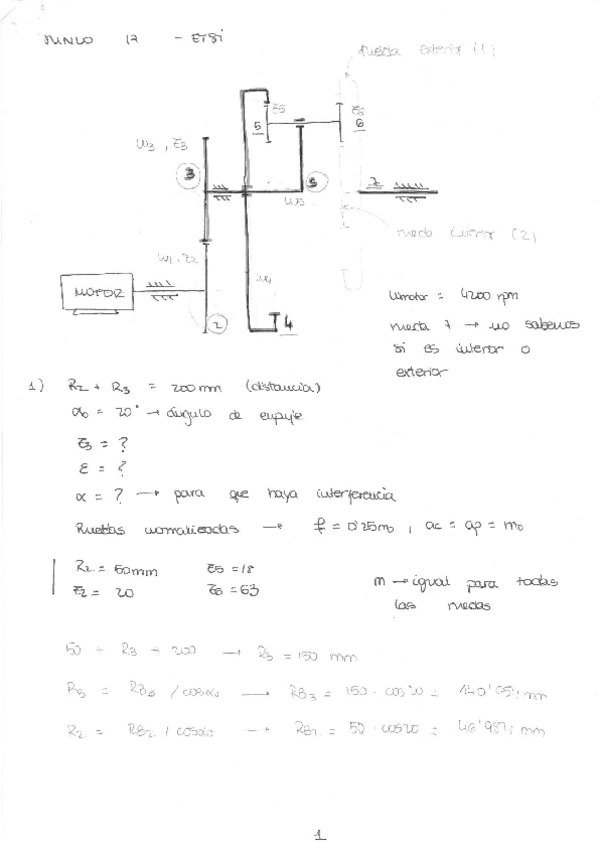 JUNIO 17 - ETSI
Rueda exterior (1)
Z5
Z6
5
6
ω3, Z3
3
3
7
ω3
rueda interior (2)
ω2, Z2
ω4
MOTOR
2
4
ωmotor = 4200 rpm
rueda 7 → no sabemos
si es interior o
exterior
1) R2 + R3 = 200mm (distancia)
α0 = 20° → ángulo de empuje
Z3 = ?
ε = ?
α = ? → para que haya interferencia
Ruedas normalizadas → f = 0'25m, ac = ap = m0
R2 = 50mm Z5 = 18
Z2 = 20 Z6 = 63
m → igual para todas
las ruedas
50 + R3 = 200 → R3 = 150 mm
R3 = RB3 / cosα0 → RB3 = 150 · cos20 = 140'954 mm
R2 = RB2 / cosα0 → RB2 = 50 · cos20 = 46'984 mm
1